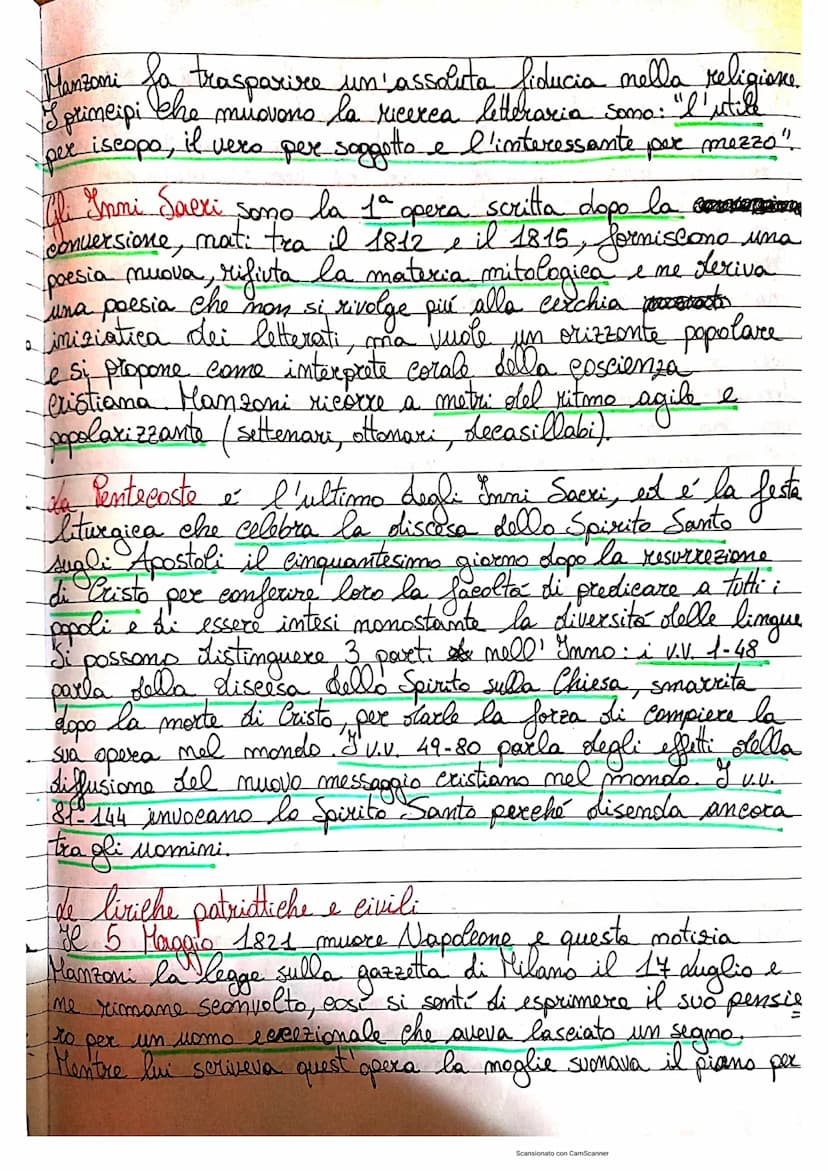 Manzoni fa trasparire un'assoluta fiducia nella religione.
I principi che muovono la ricerca letteraria sono: "l'utile
per iscopo, il vero per soggetto e l'interessante per mezzo".
Gli Inni Sacri sono la 1ª opera scritta dopo la
conversione, nati tra il 1812 e il 1815, forniscono una
poesia nuova, rifiuta la materia mitologica e ne deriva
una poesia che non si rivolge piú alla cerchia
iniziatica dei letterati, ma vuole un orizzonte popolare
e si propone come interprete corale della coscienza
cristiana. Manzoni ricorre a metri del ritmo agile e
popolarizzante (settenari, ottonari, decasillabi).
La Pentecoste é l'ultimo degli Inni Sacri, ed é la festa
liturgica che celebra la discesa dello Spirito Santo
sugli Apostoli il cinquantesimo giorno dopo la resurrezione
di Cristo per conferire loro la facoltá di predicare a tutti i
popoli e di essere intesi nonostante la diversitá delle lingue
Si possono distinguere 3 parti nell'Inno: i v.v. 1-48
parla della discesa dello Spirito sulla Chiesa, smarrita
dopo la morte di Cristo, per darle la forza di compiere la
sua opera nel mondo. I v.v. 49-80 parla degli effetti della
diffusione del nuovo messaggio cristiano nel mondo. I v.v.
81-144 invocano lo Spirito Santo perché disenda ancora
tra gli uomini.
Le liriche patriottiche e civili
Il 5 Maggio 1821 muore Napoleone e questa notizia
Manzoni la legge sulla gazzetta di Milano il 17 Luglio e
ne rimane sconvolto, cosí si sentí di esprimere il suo pensie
ro per un uomo eccezionale che aveva lasciato un segno.
Mentre lui scriveva quest'opera la moglie suonava il piano per
Scansionato con CamScanner